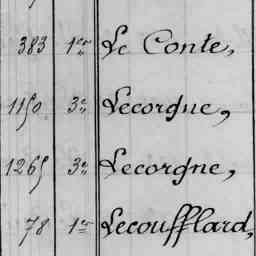 383 1er Le Conte,
1150 3e Lecorgne,
1265 3e Lecorgne,
78 1er Lecoufflard,